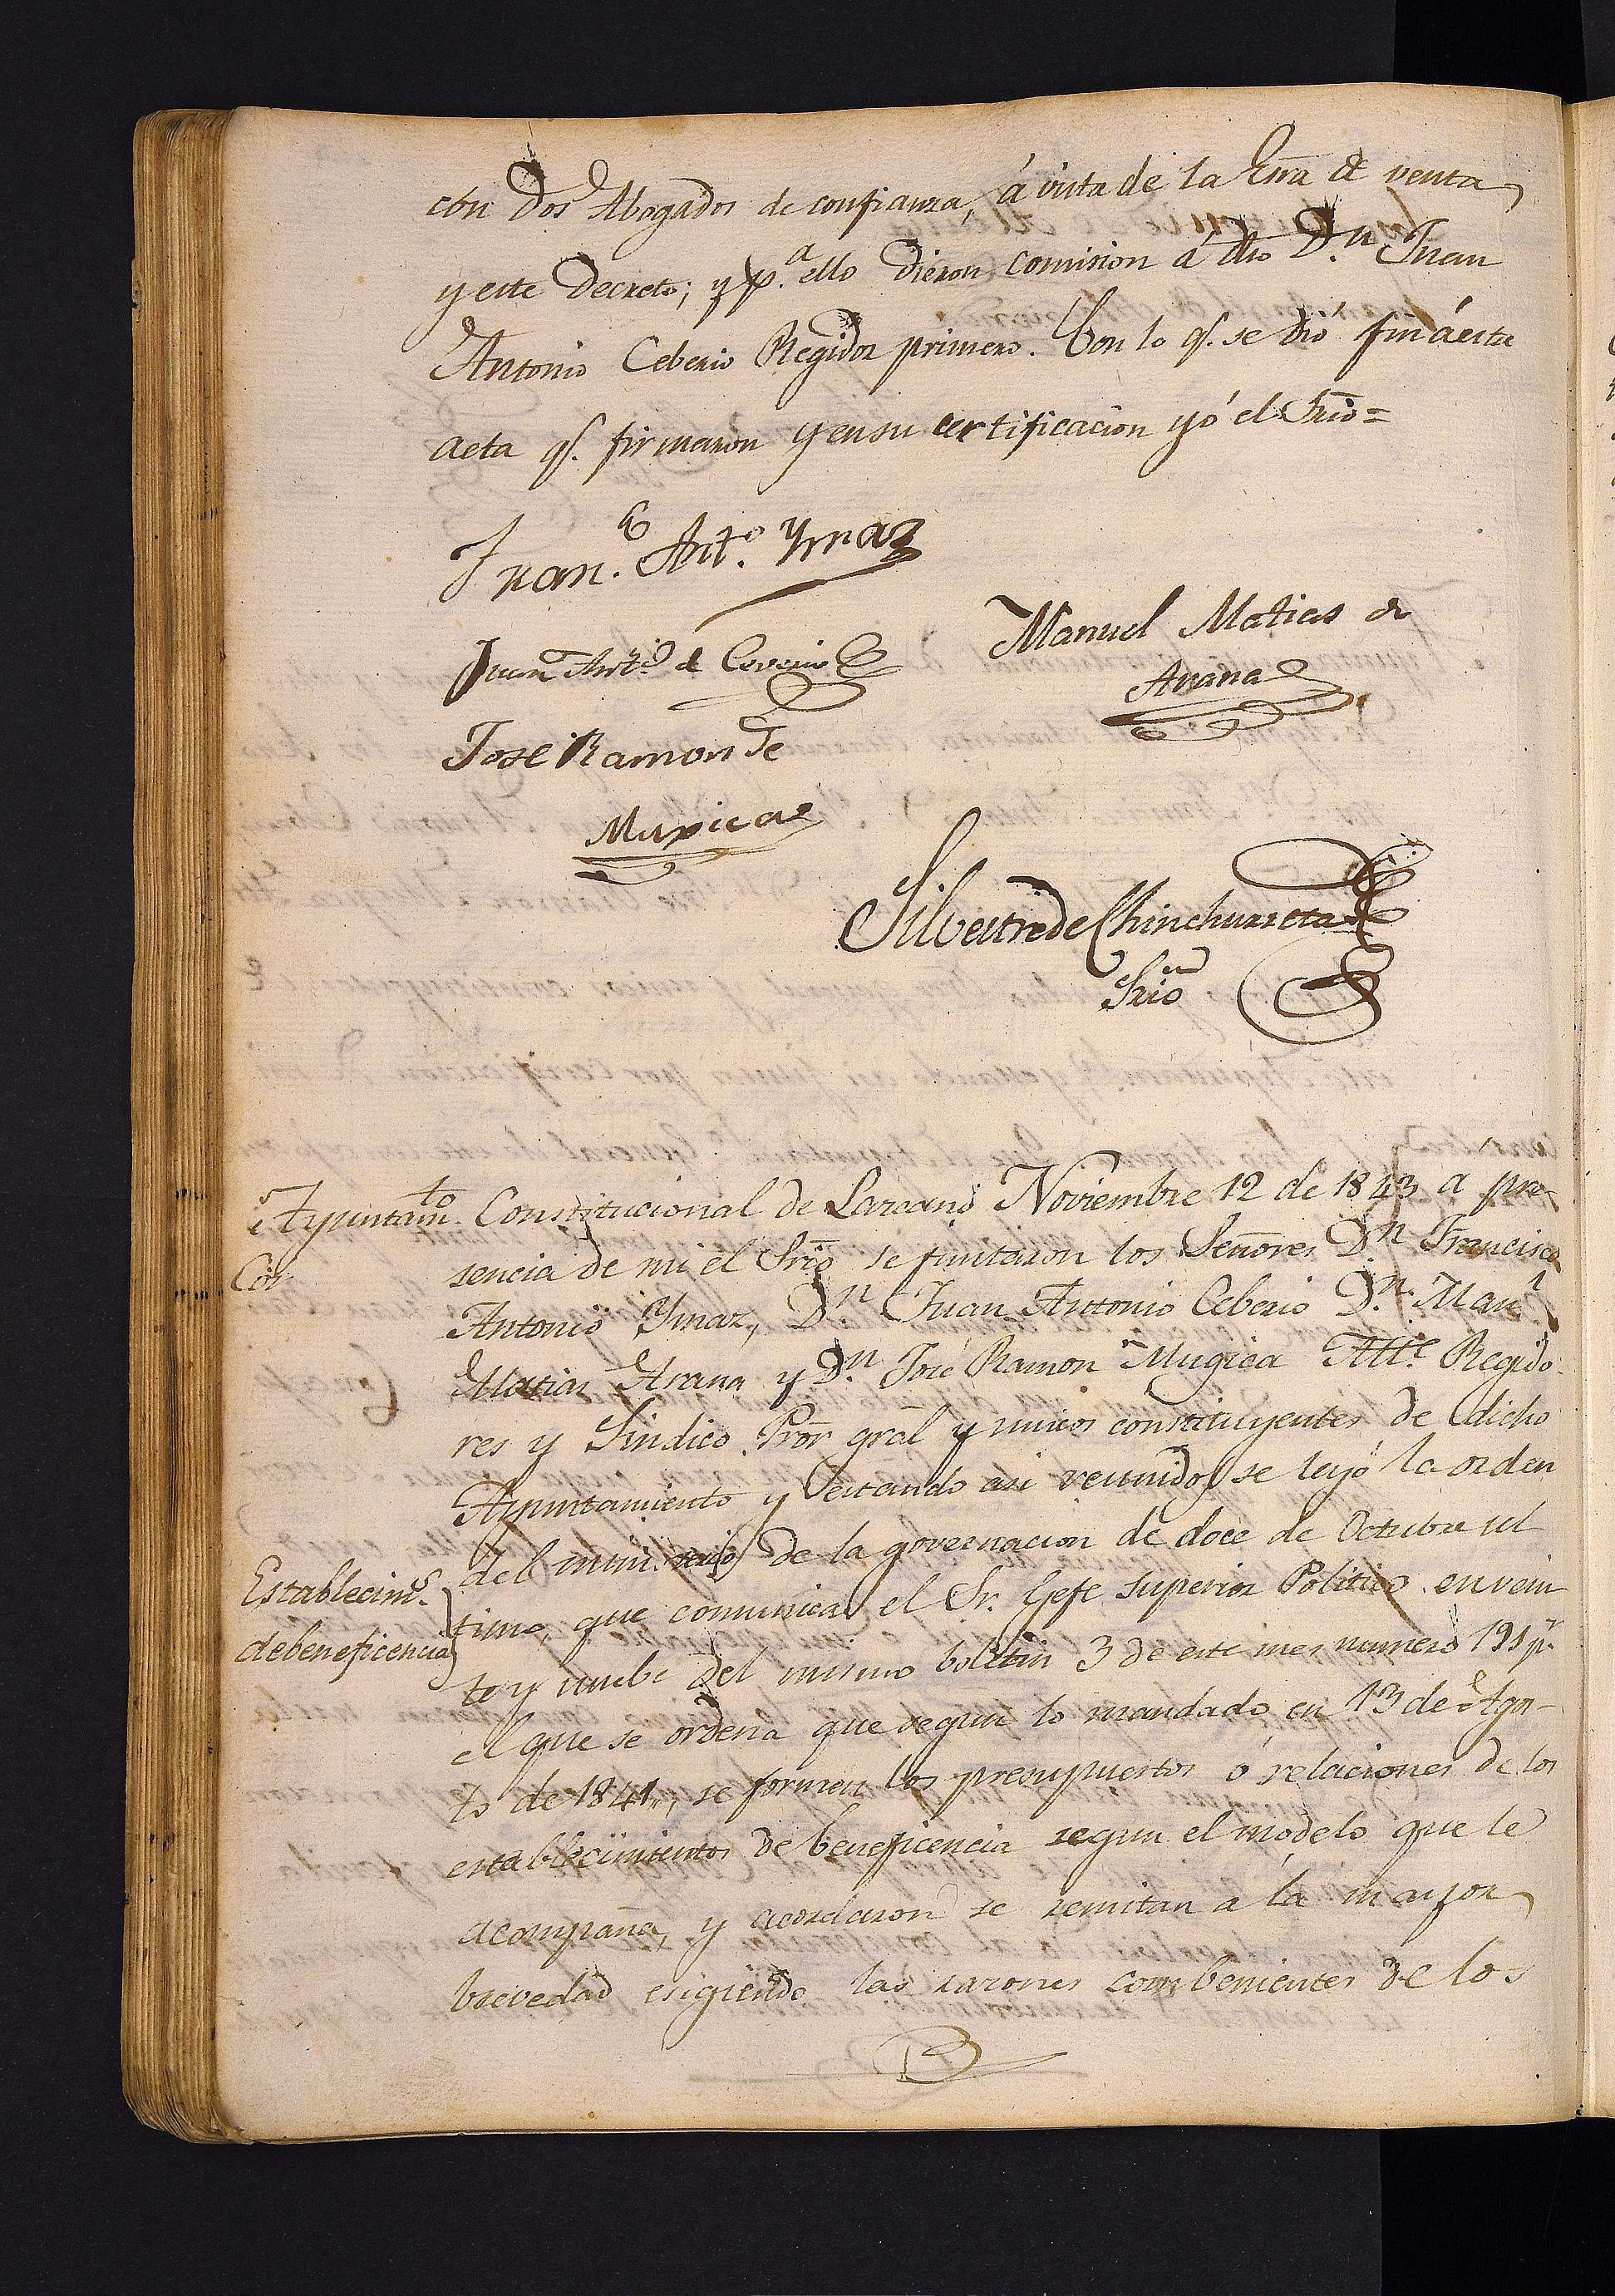 con Dos Abogados de confianza, á vista de la Esra de venta
y este Decreto; y p.a ello dieron comision á dho D.n Juan
Antonio Ceberio Regidor primero. Con lo q.e se dió fin á este
acta q.e firmaron y en su certificacion yó el Srio=
Fran.co Ant.o Ymaz
Manuel Matias de
Arana
Juan Ant.o de Ceverio
Jose Ramon de
Muxica
Silvestre de Chinchurreta
Srio
Ayuntam.to Constitucional de Lazcano Noviembre 12 de 1843 a pre-
sencia de mi el Srio se juntaron los Señores D.n Francisco
Antonio Ymaz, D.n Juan Antonio Ceberio D.n Man.l
Matias Arana y D.n José Ramon Mugica Alle. Regido-
res y Sindico Pror gral y unicos constituyentes de dicho
Ayuntamiento y estando asi reunidos se leyó la orden
Establecim.s
de beneficencia
del ministerio de la governacion de doce de Octubre ul
timo, que comunica el Sr. Gefe superior Politico en vein
te y nuebe del mismo boletin 3 de este mes numero 131 p.r
el que se ordena que segun lo mandado en 13 de Agos-
to de 1841, se formen los presupuestos ó relaciones de los
establecimientos de beneficencia segun el modelo que le
acompaña, y acordaron se remitan a la mayor
brevedad esigiendo las razones combenientes de los